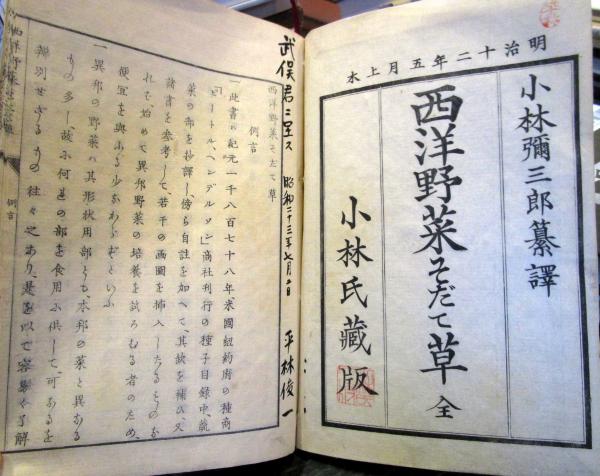 明治十二年五月上木
小林彌三郎纂譯
西洋野菜そだて草 全
小林氏藏版
武俣君ニ呈ス 昭和二十三年七月二日 平林俊一
西洋野菜そだて草
例言
一此書ハ紀元一千八百七十八年、米國紐約府の種商
「ピートル、ヘンデルソン」商社刊行の種子目録中、就
菜の部を抄譯し、傍ら自註を加へて、其缺を補ひ、又
諸書を参考して、若干の画圖を挿入したるものな
れも始めて異邦野菜の培養を試ろむる者のため、
便宜を與ふる少なからざといふ
一異邦の野菜ハ其形状用部とも、本邦の菜と異ある
もの多し、故に何等の部を食用に供して、可あるを
辨別せざるもの往々之あり、是を以て容易く了解
例言